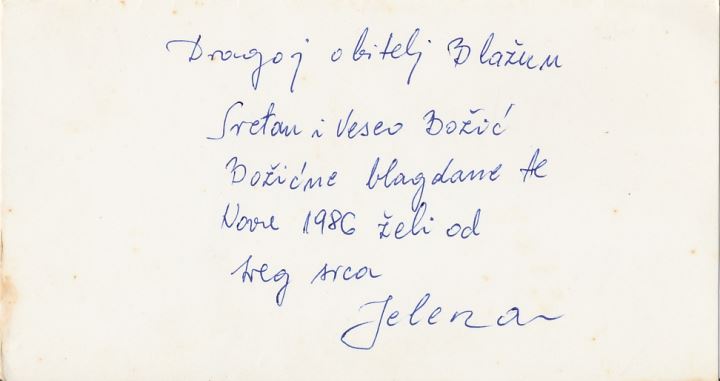 Dragoj obitelj Blažun
Sretan i Veseo Božić
Božićne blagdane te
Nove 1986 želi od
sveg srca
Jelena